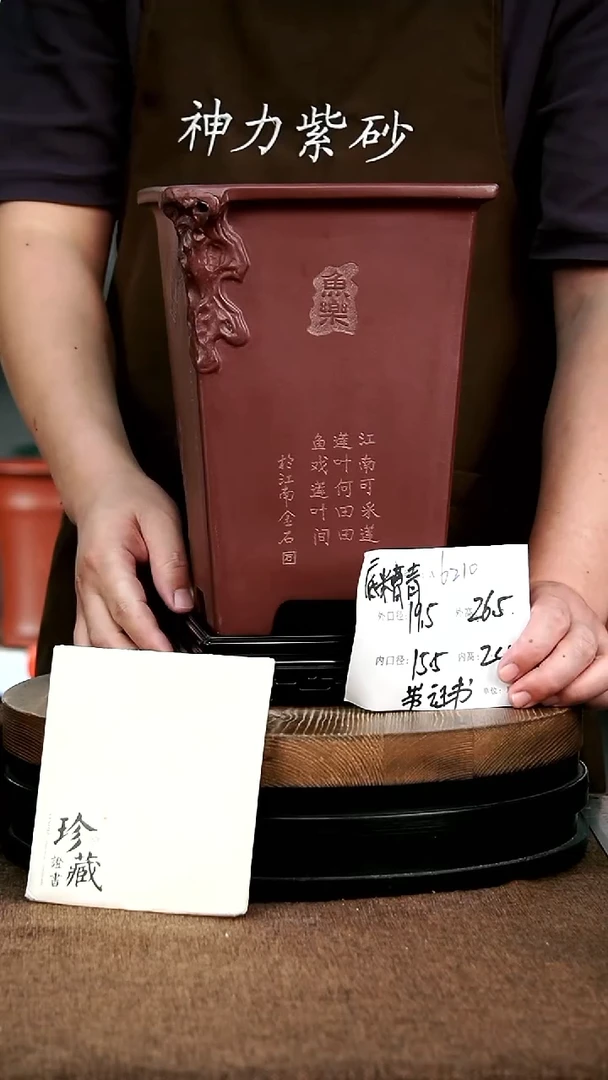 神力紫砂
魚樂
江南可采莲
莲叶何田田
鱼戏莲叶间
於江南金石
底糟青 6210
外口径: 19.5 外高: 26.5
内口径: 15.5 内高: 2
带证书 单位:
珍藏
證書